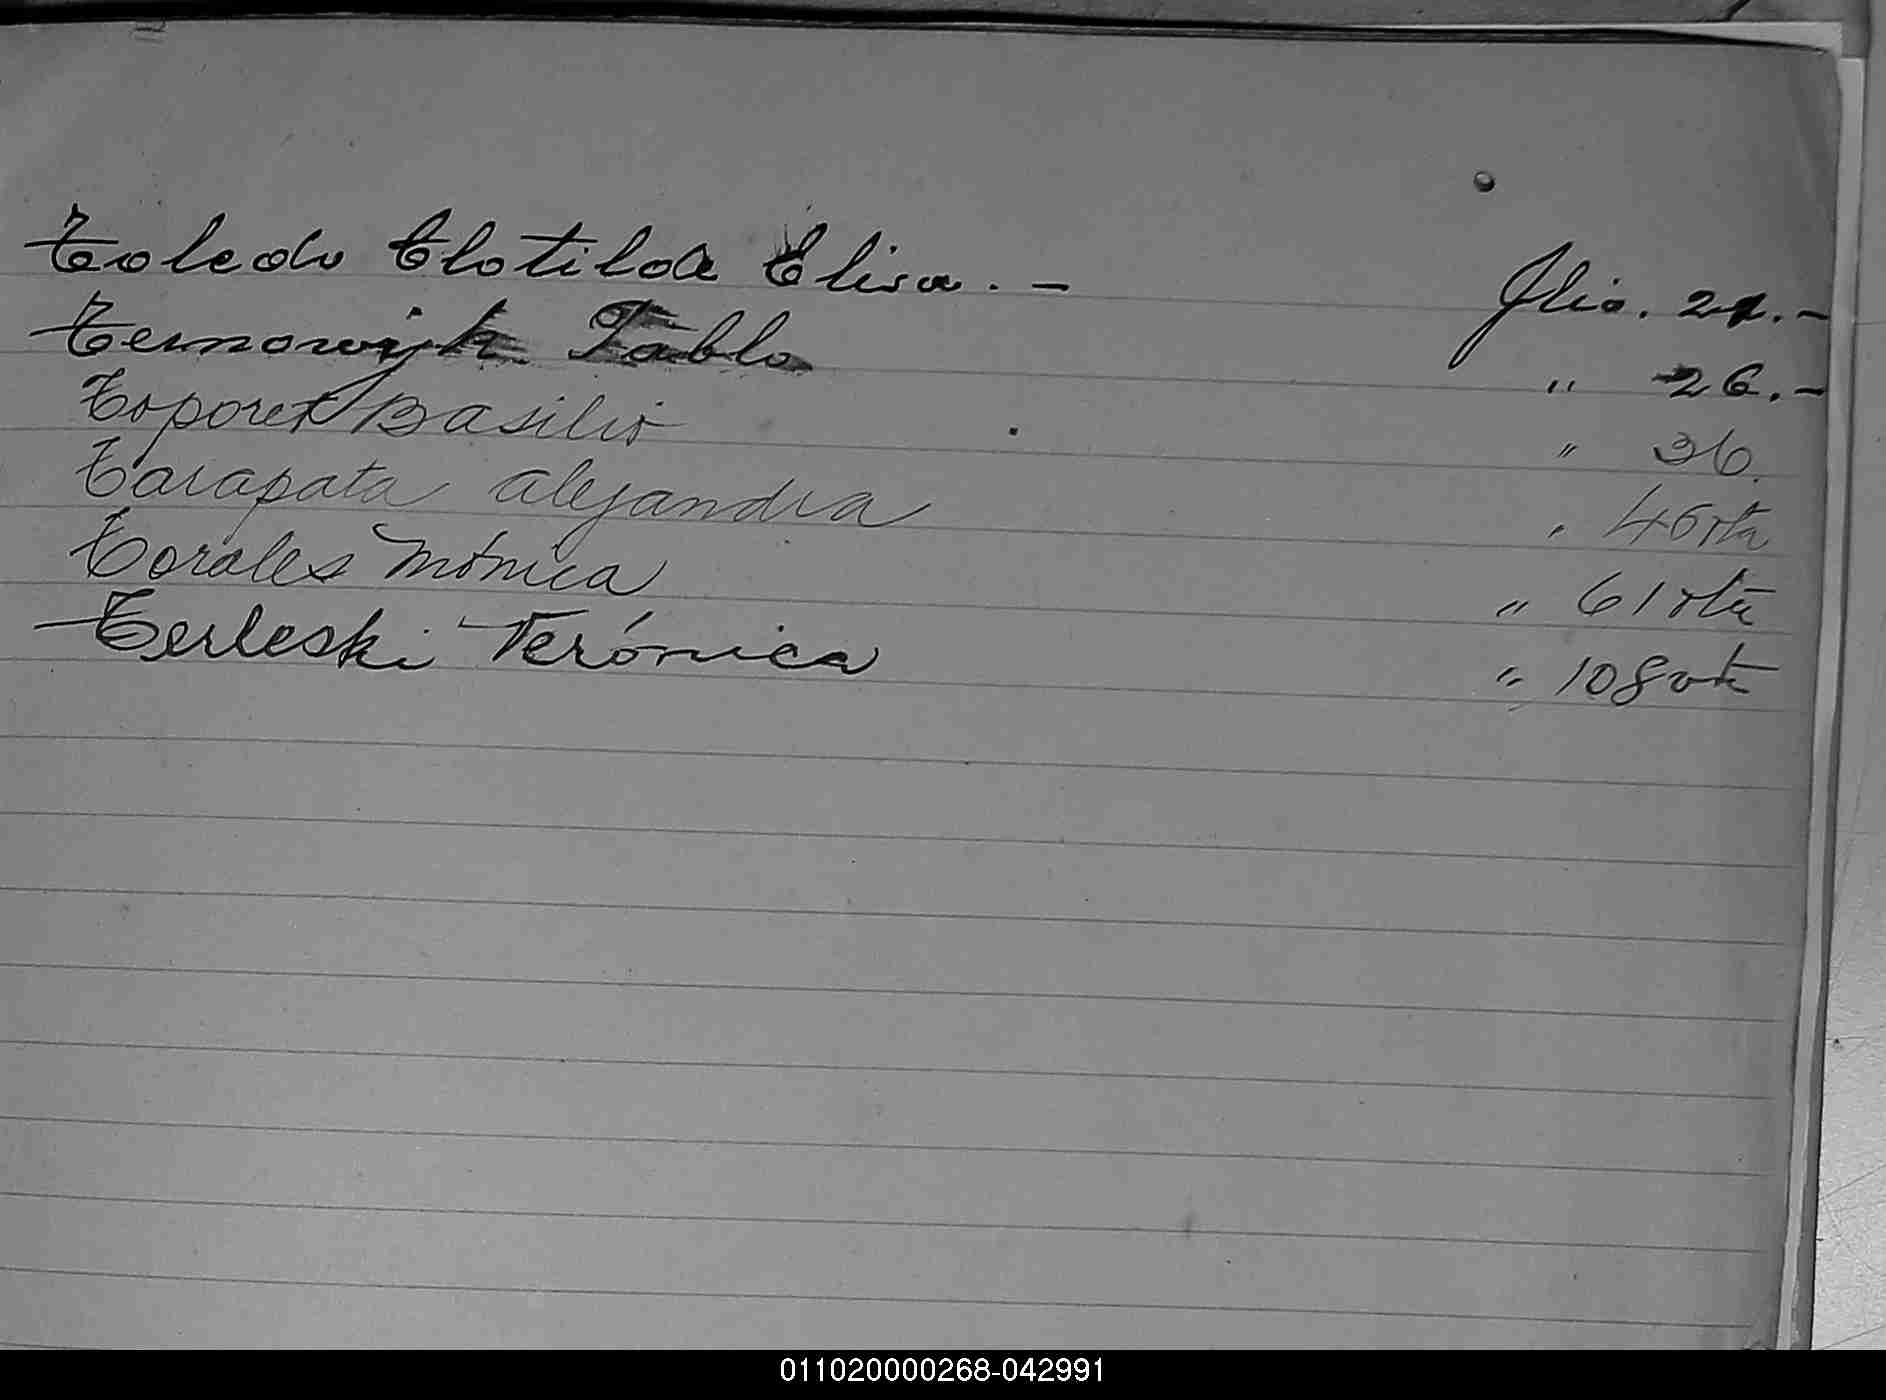 Toledo Clotilde Elisa. - Flio. 21.-
Ternowyk Pablo " 26.-
Toporek Basilio " 36.
Tarapata Alejandra " 46 vta
Torales Mónica " 61 vta
Terleski Verónica " 108 vta
011020000268-042991